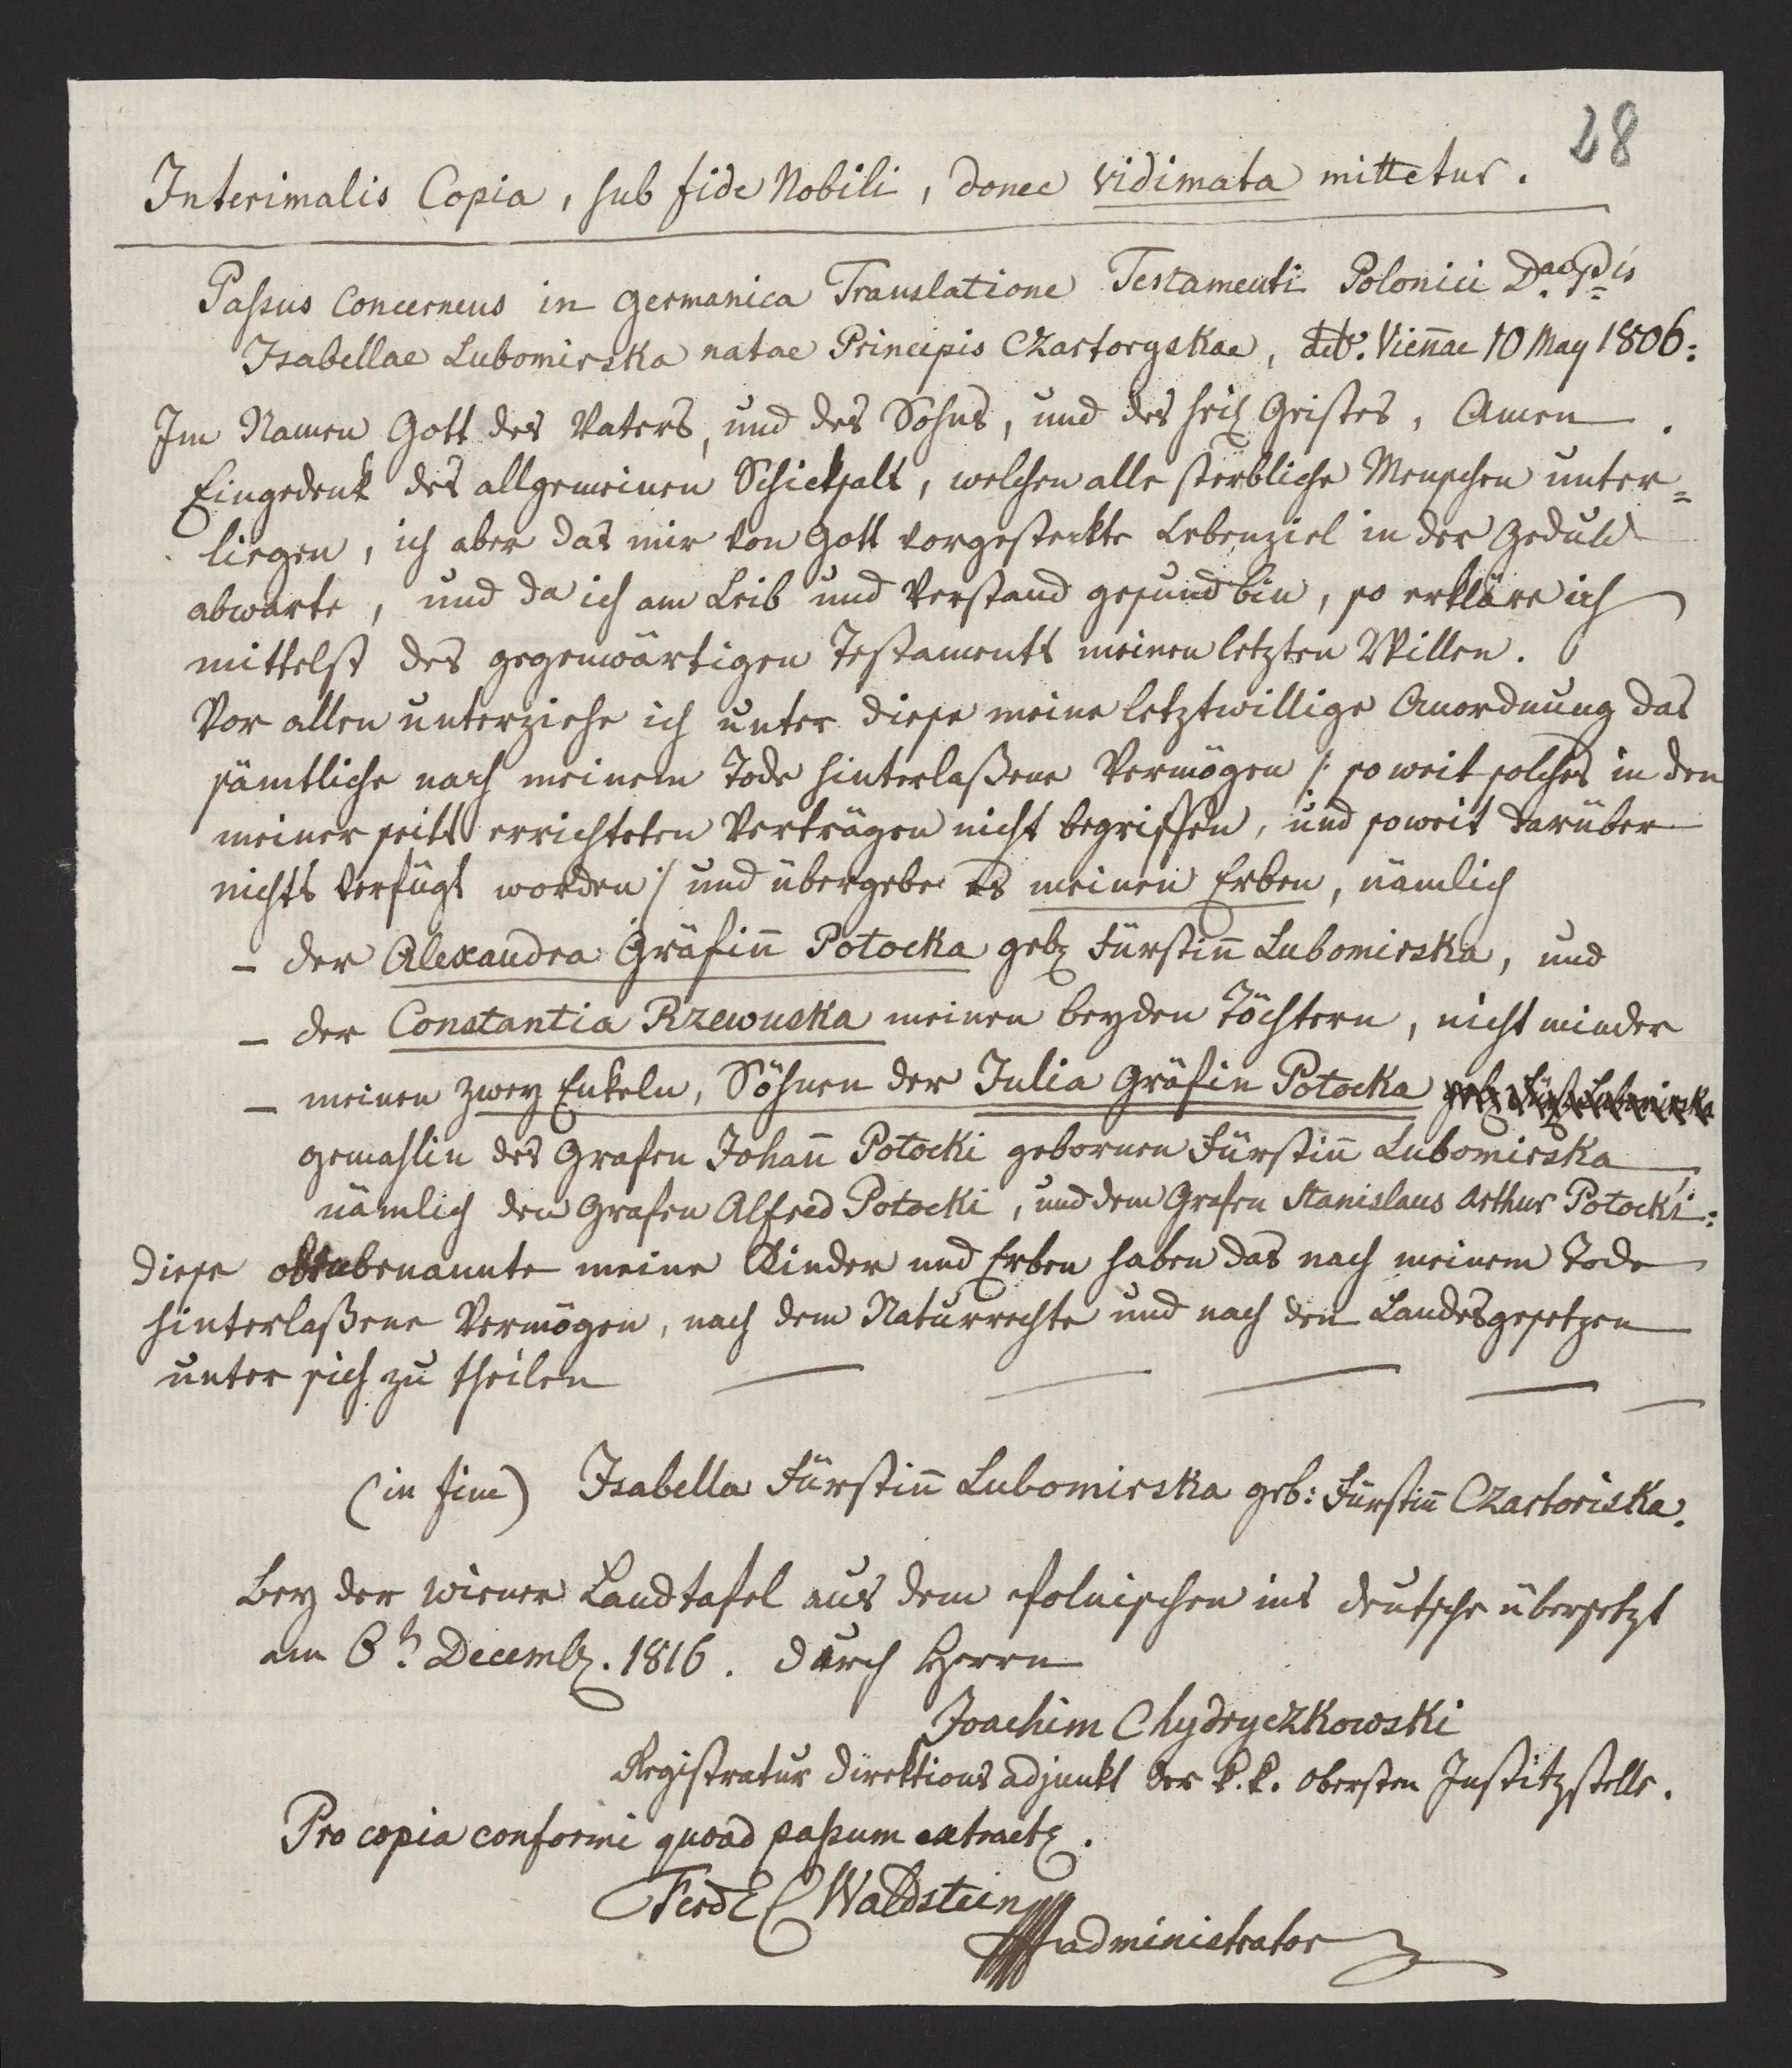 28
Interimalis Copia, sub fide Nobili, donec vidimata mittetur.
Passus concernens in germanica Translatione Testamenti Polonici Dae Ppis
Isabellae Lubomirska natae Principis Czartoryskae, ddt. Vieñae 10 May 1806:
Im Namen Gott des Vaters, und des Sohns, und des heil Geistes, Amen.
Eingedenk des allgemeinen Schicksals, welchen alle sterbliche Menschen unter=
liegen, ich aber das mir von Gott vorgesteckte Lebenziel in der Geduld
abwarte, und da ich am Leib und Verstand gesund bin, so erkläre ich
mittelst des gegenwärtigen Testaments meinen letzten Willen.
Vor allen unterziehe ich unter diese meine letztwillige Anordnung das
sämtliche nach meinem Tode hinterlaßene Vermögen /: so weit solches in den
meiner seits errichteten Verträgen nicht begriffen, und soweit darüber
nichts verfügt worden :/ und übergebe es meinen Erben, nämlich
– der Alexandra Gräfiñ Potocka geb. Fürstiñ Lubomirska, und
– der Constantia Rzewuska meinen beyden Töchtern, nicht minder
– meinen zwey Enkeln, Söhnen der Julia Gräfin Potocka geb. Fürst. Lubomirska
gemahlin des Grafen Johañ Potocki gebornen Fürstiñ Lubomirska,
nämlich den Grafen Alfred Potocki, und dem Grafen Stanislaus Arthur Potocki:
diese obenbenannte meine Kinder und Erben haben das nach meinem Tode
hinterlaßene Vermögen, nach dem Naturrechte und nach den Landesgesetzen
unter sich zu theilen — — — — —
(in fine) Isabella Fürstiñ Lubomirska geb: Fürstiñ Czartoriska.
Bey der Wiener Landtafel aus dem Polnischen ins deutsche übersetzt
am 6t Decemb. 1816. durch Herrn
Joachim Chydryczkowski
Registratur Direktions adjunkt der k.k. obersten Justitzstelle.
Pro copia conformi quoad passum extract.
Ferd E C Waldstein
administrator